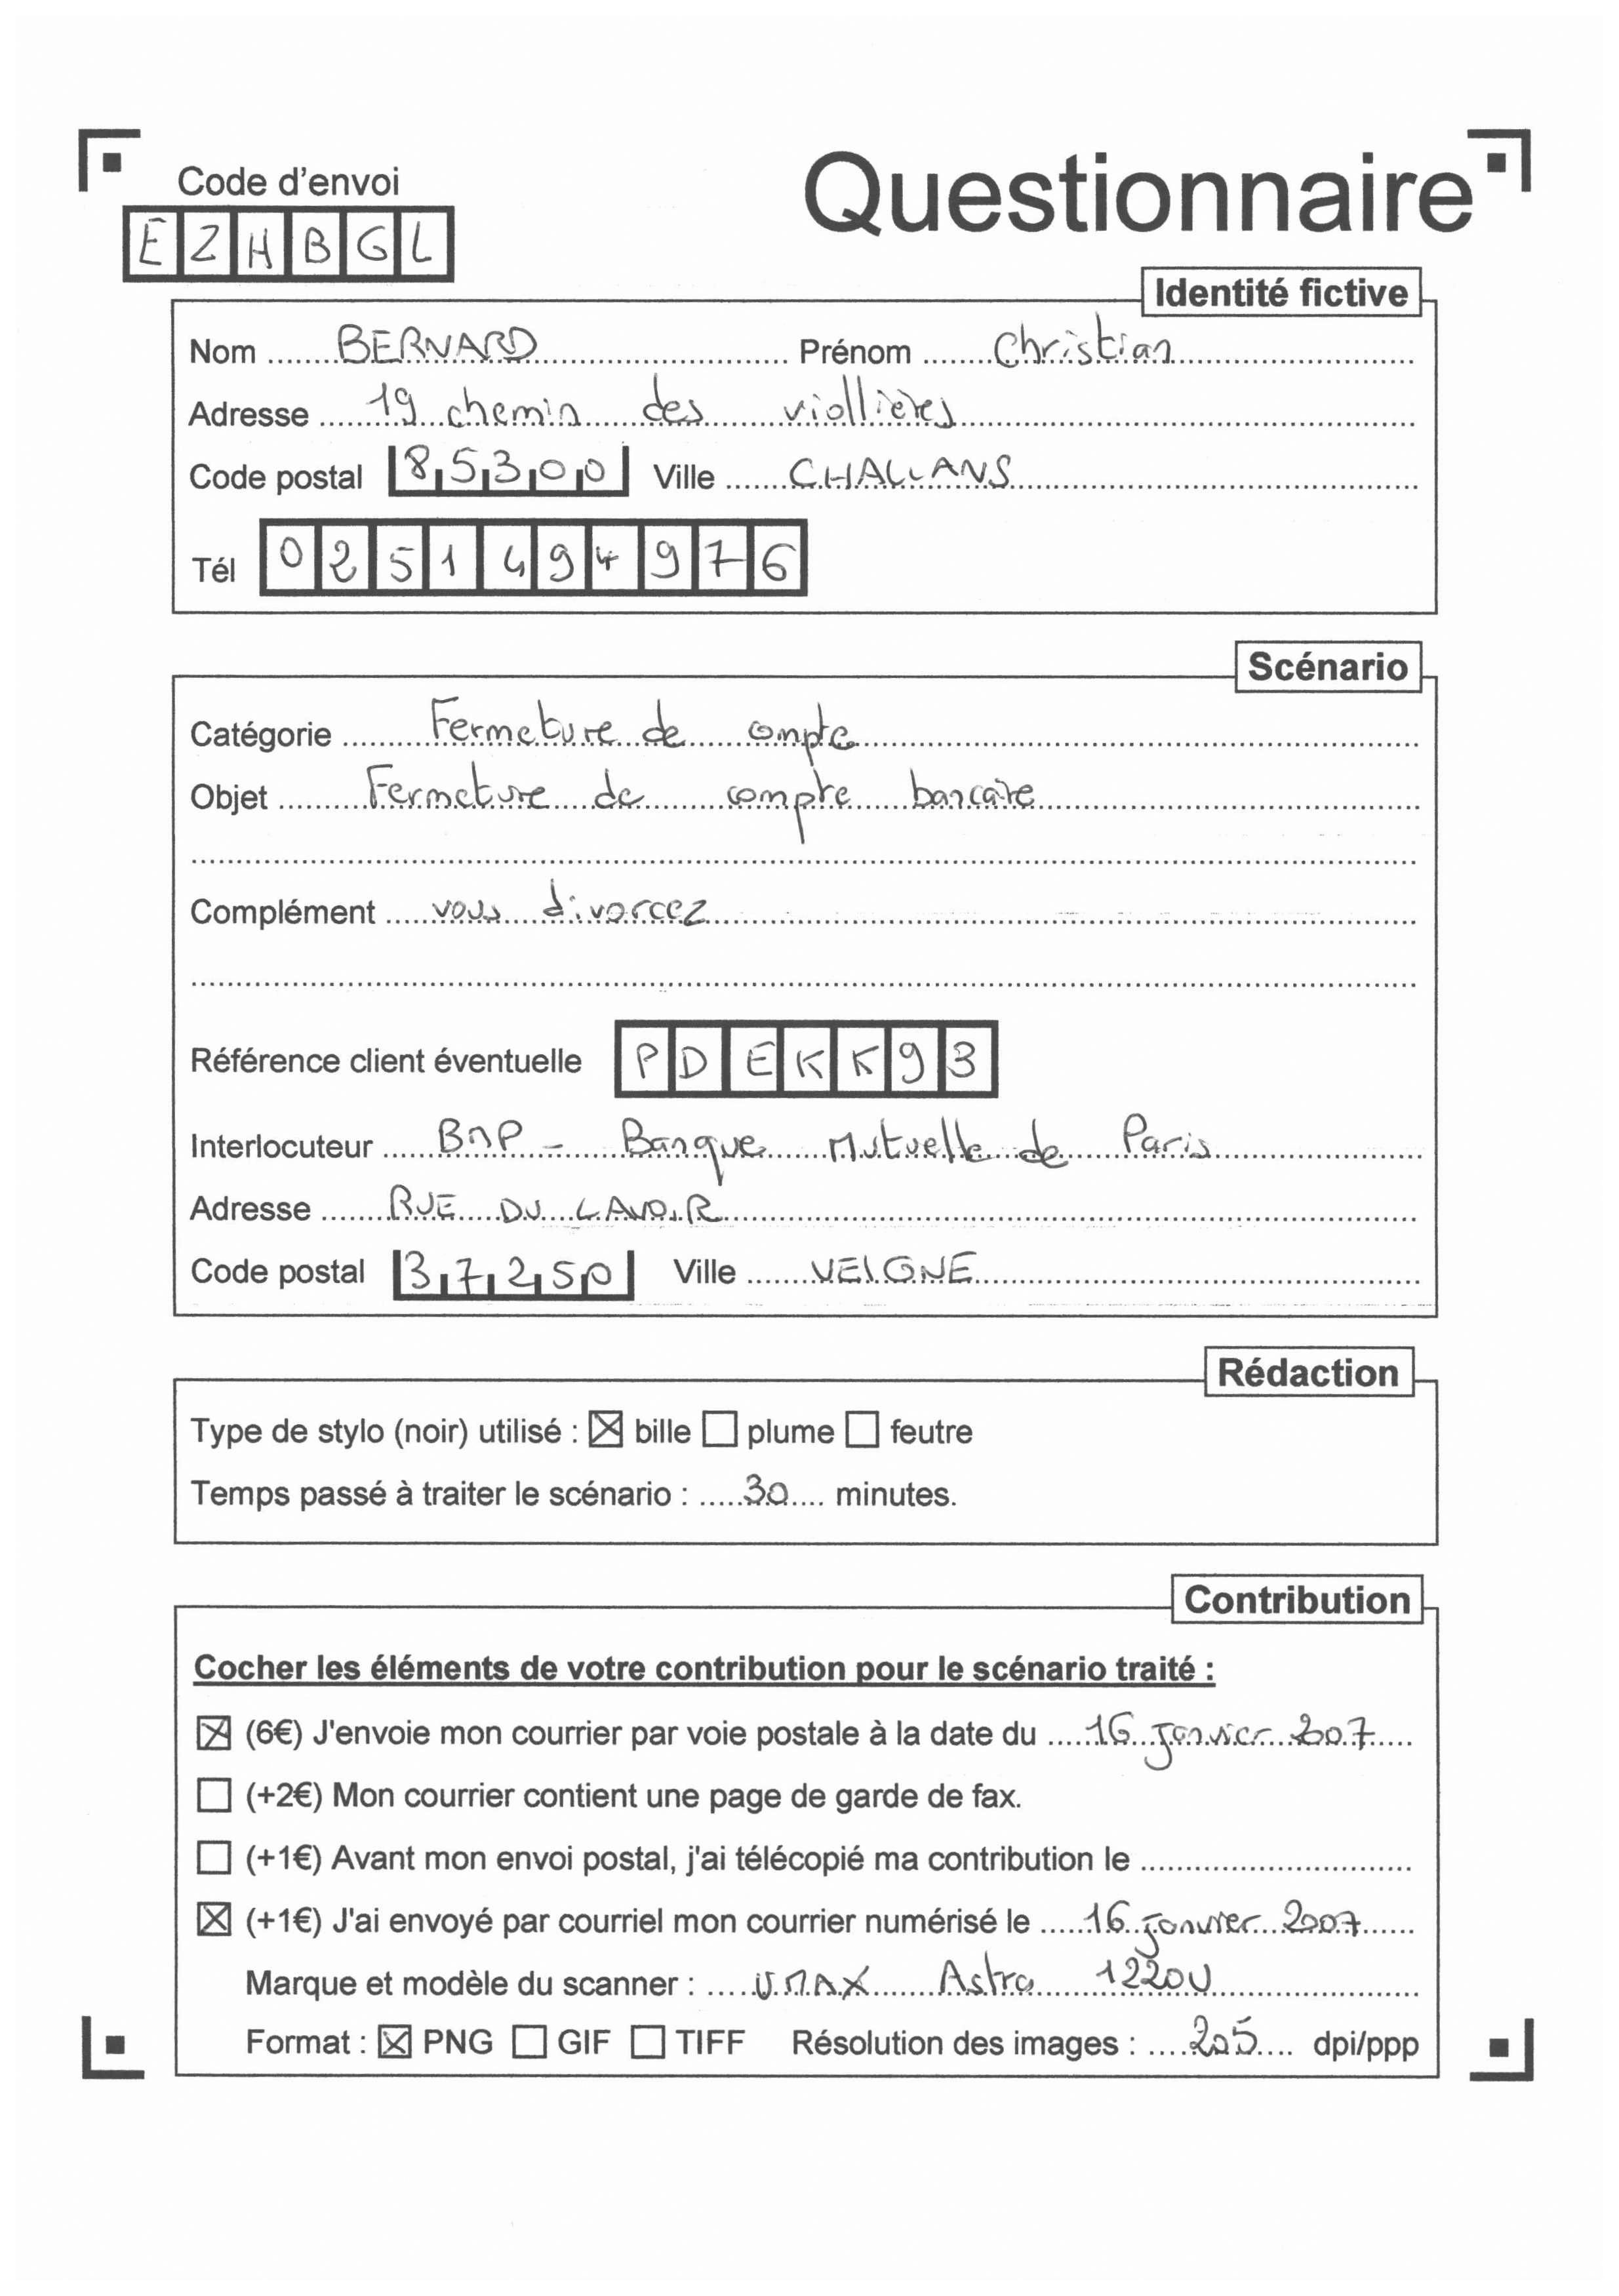 Code d'envoi
EZHBGL
Questionnaire
Identité fictive
Nom BERNARD Prénom Christian
Adresse 19 chemin des viollières
Code postal 85300 Ville CHALLANS
Tél 0251494976
Scénario
Catégorie Fermeture de compte
Objet Fermeture de compte bancaire
Complément vous divorcez
Référence client éventuelle PDEKK93
Interlocuteur BMP - Banque Mutuelle de Paris
Adresse RUE DU LAVOIR
Code postal 37250 Ville VEIGNE
Rédaction
Type de stylo (noir) utilisé : ☒ bille ☐ plume ☐ feutre
Temps passé à traiter le scénario : 30 minutes.
Contribution
Cocher les éléments de votre contribution pour le scénario traité :
☒ (6€) J'envoie mon courrier par voie postale à la date du 16 janvier 2007
☐ (+2€) Mon courrier contient une page de garde de fax.
☐ (+1€) Avant mon envoi postal, j'ai télécopié ma contribution le
☒ (+1€) J'ai envoyé par courriel mon courrier numérisé le 16 janvier 2007
Marque et modèle du scanner : UMAX Astra 1220U
Format : ☒ PNG ☐ GIF ☐ TIFF Résolution des images : 205 dpi/ppp